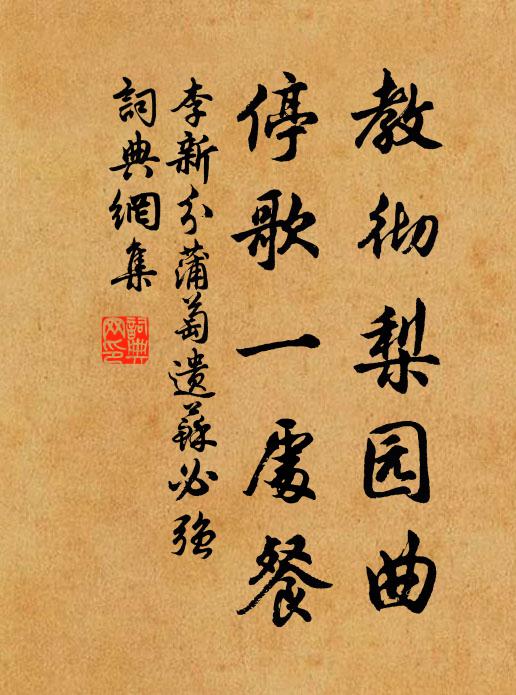 教彻梨园曲
停歌一處餐
李新分蒲萄遗蘇必強
詞典網集
詞典网印